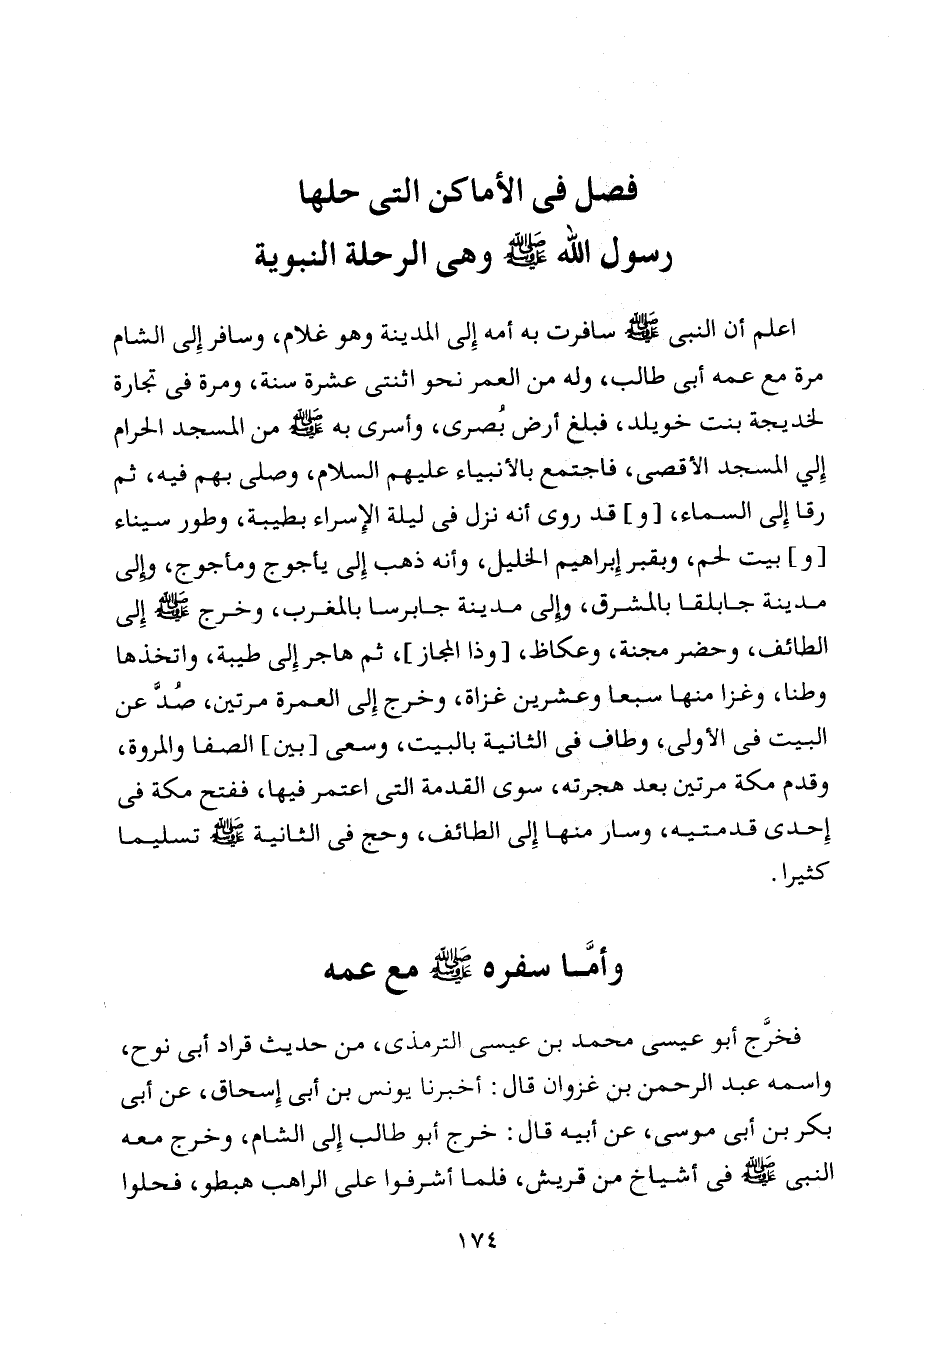 فصل فى الأماكن التى حلها
رسول الله ﷺ وهى الرحلة النبوية
اعلم أن النبى ﷺ سافرت به أمه إلى المدينة وهو غلام، وسافر إلى الشام
مرة مع عمه أبى طالب، وله من العمر نحو اثنتى عشرة سنة، ومرة فى تجارة
لخديجة بنت خويلد، فبلغ أرض بُصرى، وأسرى به ﷺ من المسجد الحرام
إلي المسجد الأقصى، فاجتمع بالأنبياء عليهم السلام، وصلى بهم فيه، ثم
رقا إلى السماء، [و] قد روى أنه نزل فى ليلة الإسراء بطيبة، وطور سيناء
[و] بيت لحم، وبقبر إبراهيم الخليل، وأنه ذهب إلى يأجوج ومأجوج، وإلى
مدينة جابلقا بالمشرق، وإلى مدينة جابرسا بالمغرب، وخرج ﷺ إلى
الطائف، وحضر مجنة، وعكاظ، [وذا المجاز]، ثم هاجر إلى طيبة، واتخذها
وطنا، وغزا منها سبعا وعشرين غزاة، وخرج إلى العمرة مرتين، صُدَّ عن
البيت فى الأولى، وطاف فى الثانية بالبيت، وسعى [بين] الصفا والمروة،
وقدم مكة مرتين بعد هجرته، سوى القدمة التى اعتمر فيها، ففتح مكة فى
إحدى قدمتيه، وسار منها إلى الطائف، وحج فى الثانية ﷺ تسليما
كثيرا.
وأمَّا سفره ﷺ مع عمه
فخرَّج أبو عيسى محمد بن عيسى الترمذى، من حديث قراد أبى نوح،
واسمه عبد الرحمن بن غزوان قال: أخبرنا يونس بن أبى إسحاق، عن أبى
بكر بن أبى موسى، عن أبيه قال: خرج أبو طالب إلى الشام، وخرج معه
النبى ﷺ فى أشياخ من قريش، فلما أشرفوا على الراهب هبطو، فحلوا
١٧٤